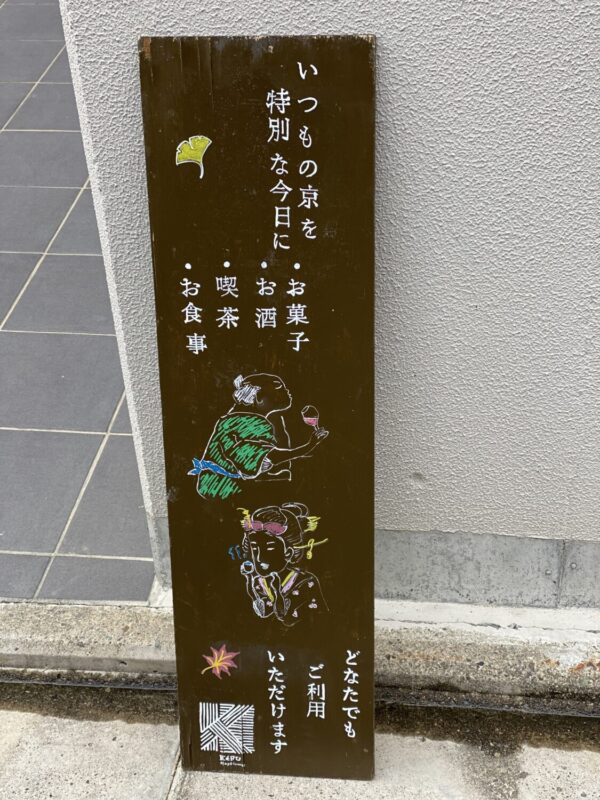 いつもの京を
特別な今日に
・お菓子
・お酒
・喫茶
・お食事
どなたでも
ご利用
いただけます